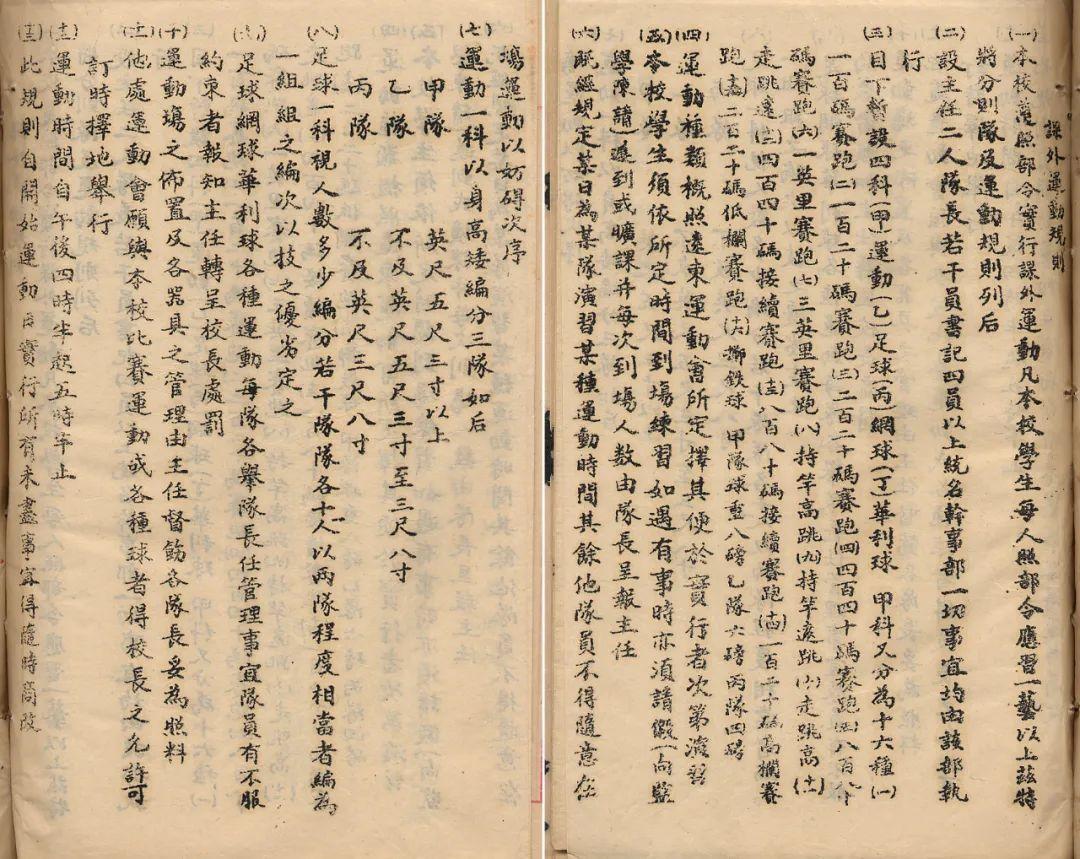 課外運動規則
(一)本校遵照部令實行課外運動凡本校學生每人照部令應習一藝以上茲特
將分則隊及運動規則列后
(二)設主任二人隊長若干員書記四員以上統名幹事部一切事宜均由該部執
行
(三)目下暫設四科(甲)運動(乙)足球(丙)網球(丁)華利球 甲科又分為十六種(一)
一百碼賽跑(二)一百二十碼賽跑(三)二百二十碼賽跑(四)四百四十碼賽跑(五)八百八十
碼賽跑(六)一英里賽跑(七)三英里賽跑(八)持竿高跳(九)持竿遠跳(十)走跳高(十一)
走跳遠(十二)四百四十碼接續賽跑(十三)八百八十碼接續賽跑(十四)一百二十碼高欄賽
跑(十五)二百二十碼低欄賽跑(十六)擲鉄球 甲隊球重八磅乙隊六磅丙隊四磅
(四)運動種類概照遠東運動會所定擇其便於實行者次第演習
(五)本校學生須依所定時間到場練習如遇有事時亦須請假(向監
學陳請)遲到或曠課并每次到場人数由隊長呈報主任
(六)既經規定某日為某隊演習某種運動時間其餘他隊員不得隨意在
塲運動以妨碍次序
(七)運動一科以身高矮編分三隊如后
甲隊 英尺五尺三寸以上
乙隊 不及英尺五尺三寸至三尺八寸
丙隊 不及英尺三尺八寸
(八)足球一科視人數多少編分若干隊隊各十人以兩隊程度相當者編為
一組組之編次以技之優劣定之
(九)足球網球華利球各種運動每隊各舉隊長任管理事宜隊員有不服
約束者報知主任轉呈校長處罰
(十)運動塲之佈置及各器具之管理由主任督飭各隊長妥為照料
(十一)他處運動會願與本校比賽運動或各種球者得校長之允許可
訂時擇地舉行
(十二)運動時間自午後四時半起五時半止
(十三)此規則自開始運動日實行所有未盡事宜得隨時商改